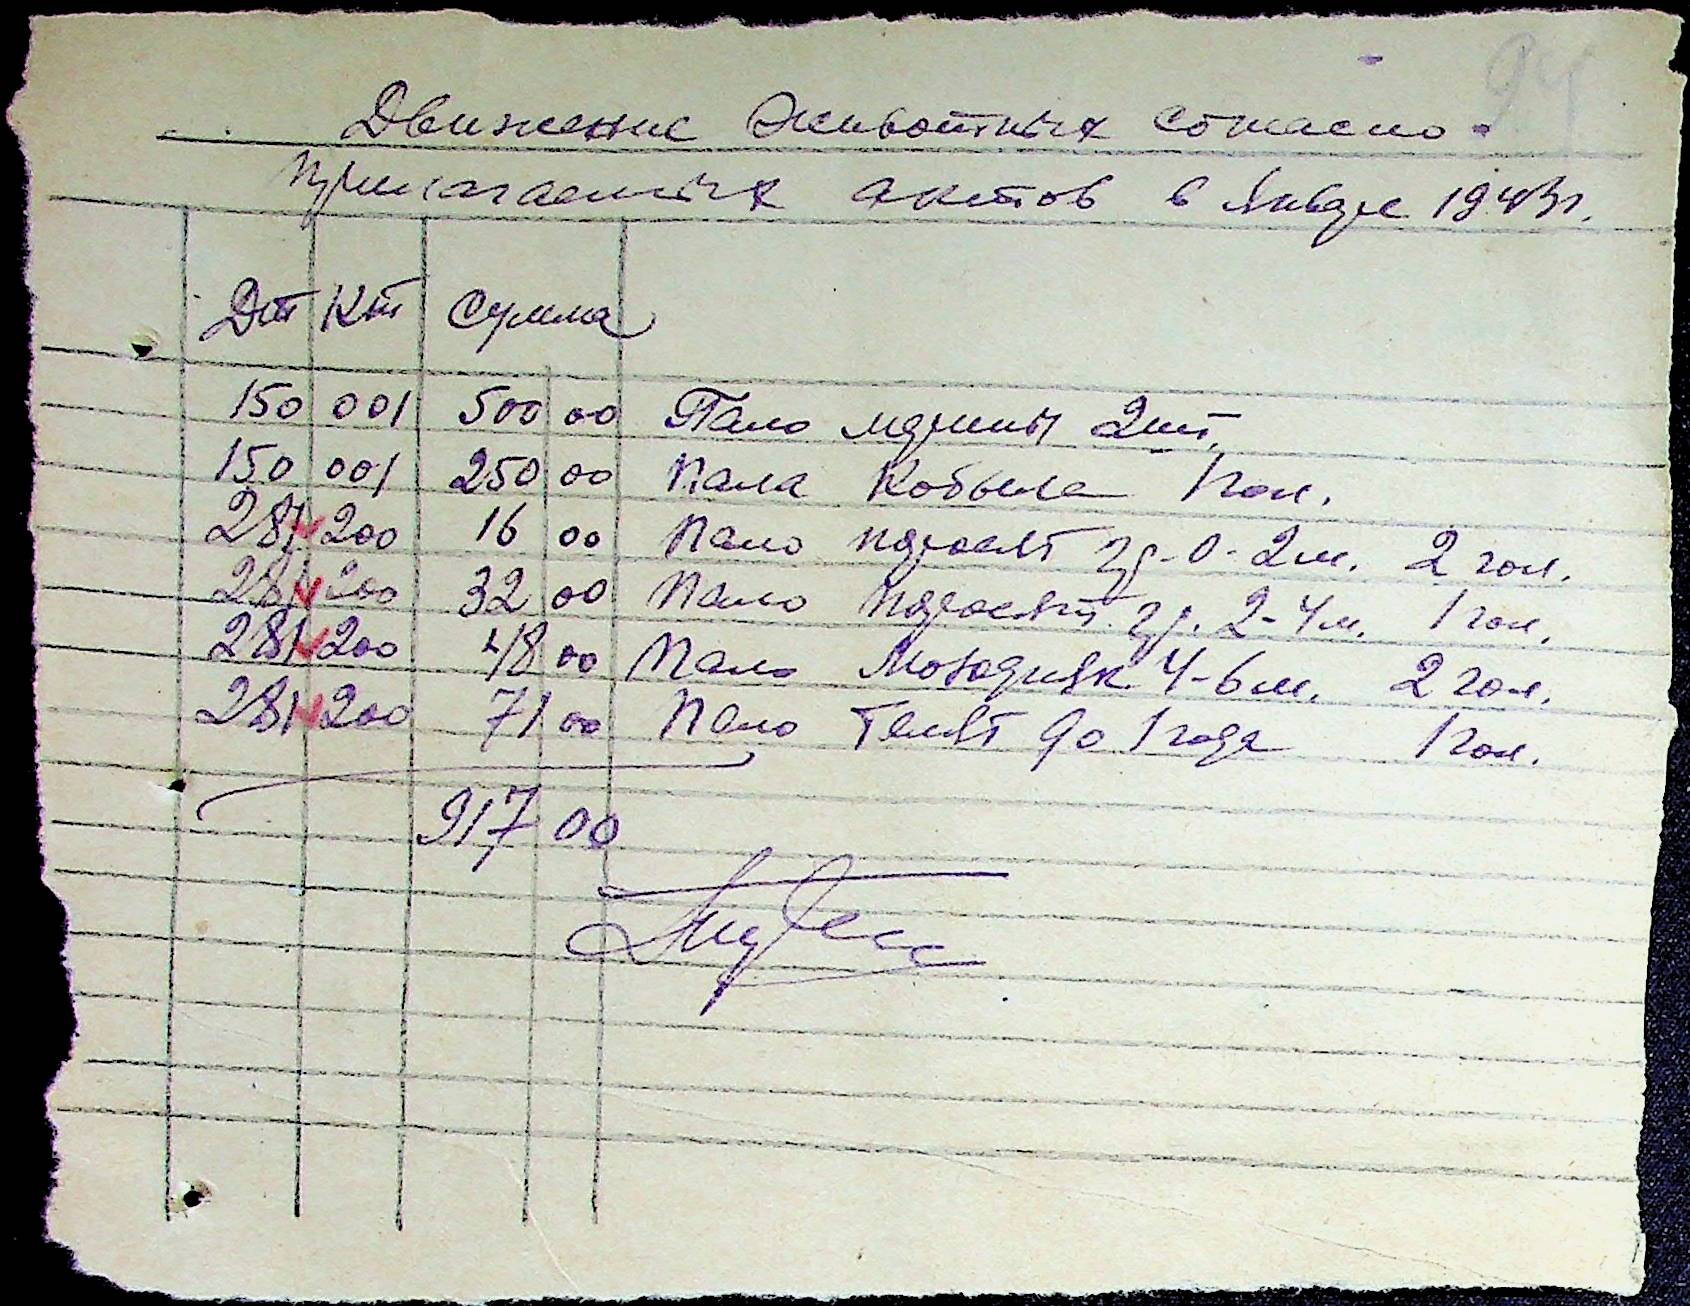 Движение животных согласно
прилагаемых актов в Январе 1943г.
Дт Кт Сумма
150 001 500 00 Пало 2шт.
150 001 250 00 Пала Кобыла 1 гол.
281 200 16 00 Пало поросят гр. 0-2м. 2 гол.
281 200 32 00 Пало поросят гр. 2-4м. 1 гол.
281 200 48 00 Пало Молодняк 4-6м. 2 гол.
281 200 71 00 Пало телят до 1 года 1 гол.
917 00